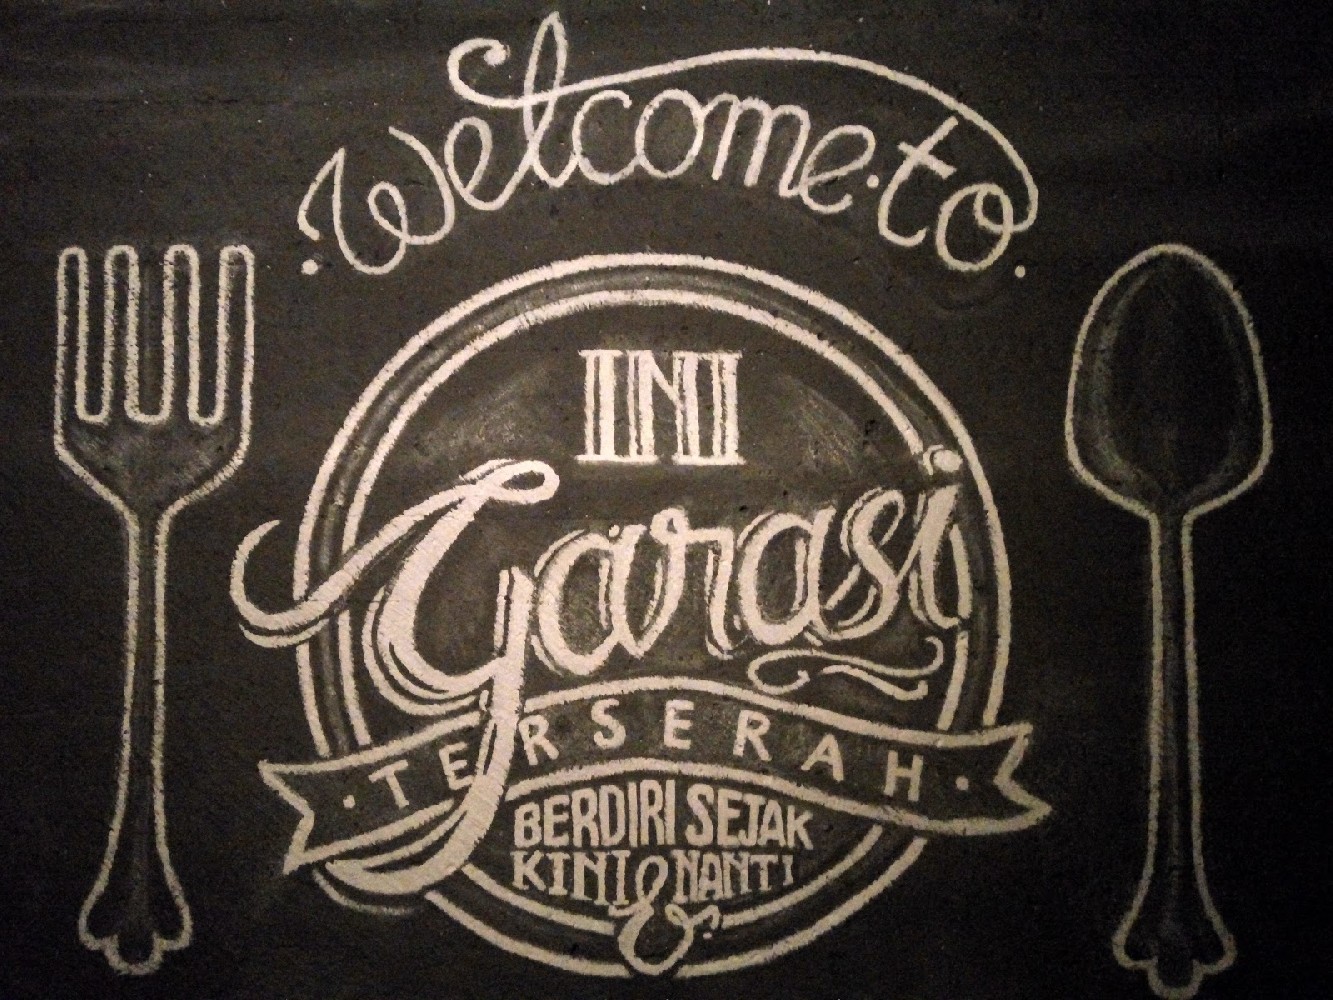 Welcome to
INI
Garasi
TERSERAH
BERDIRI SEJAK
KINI & NANTI